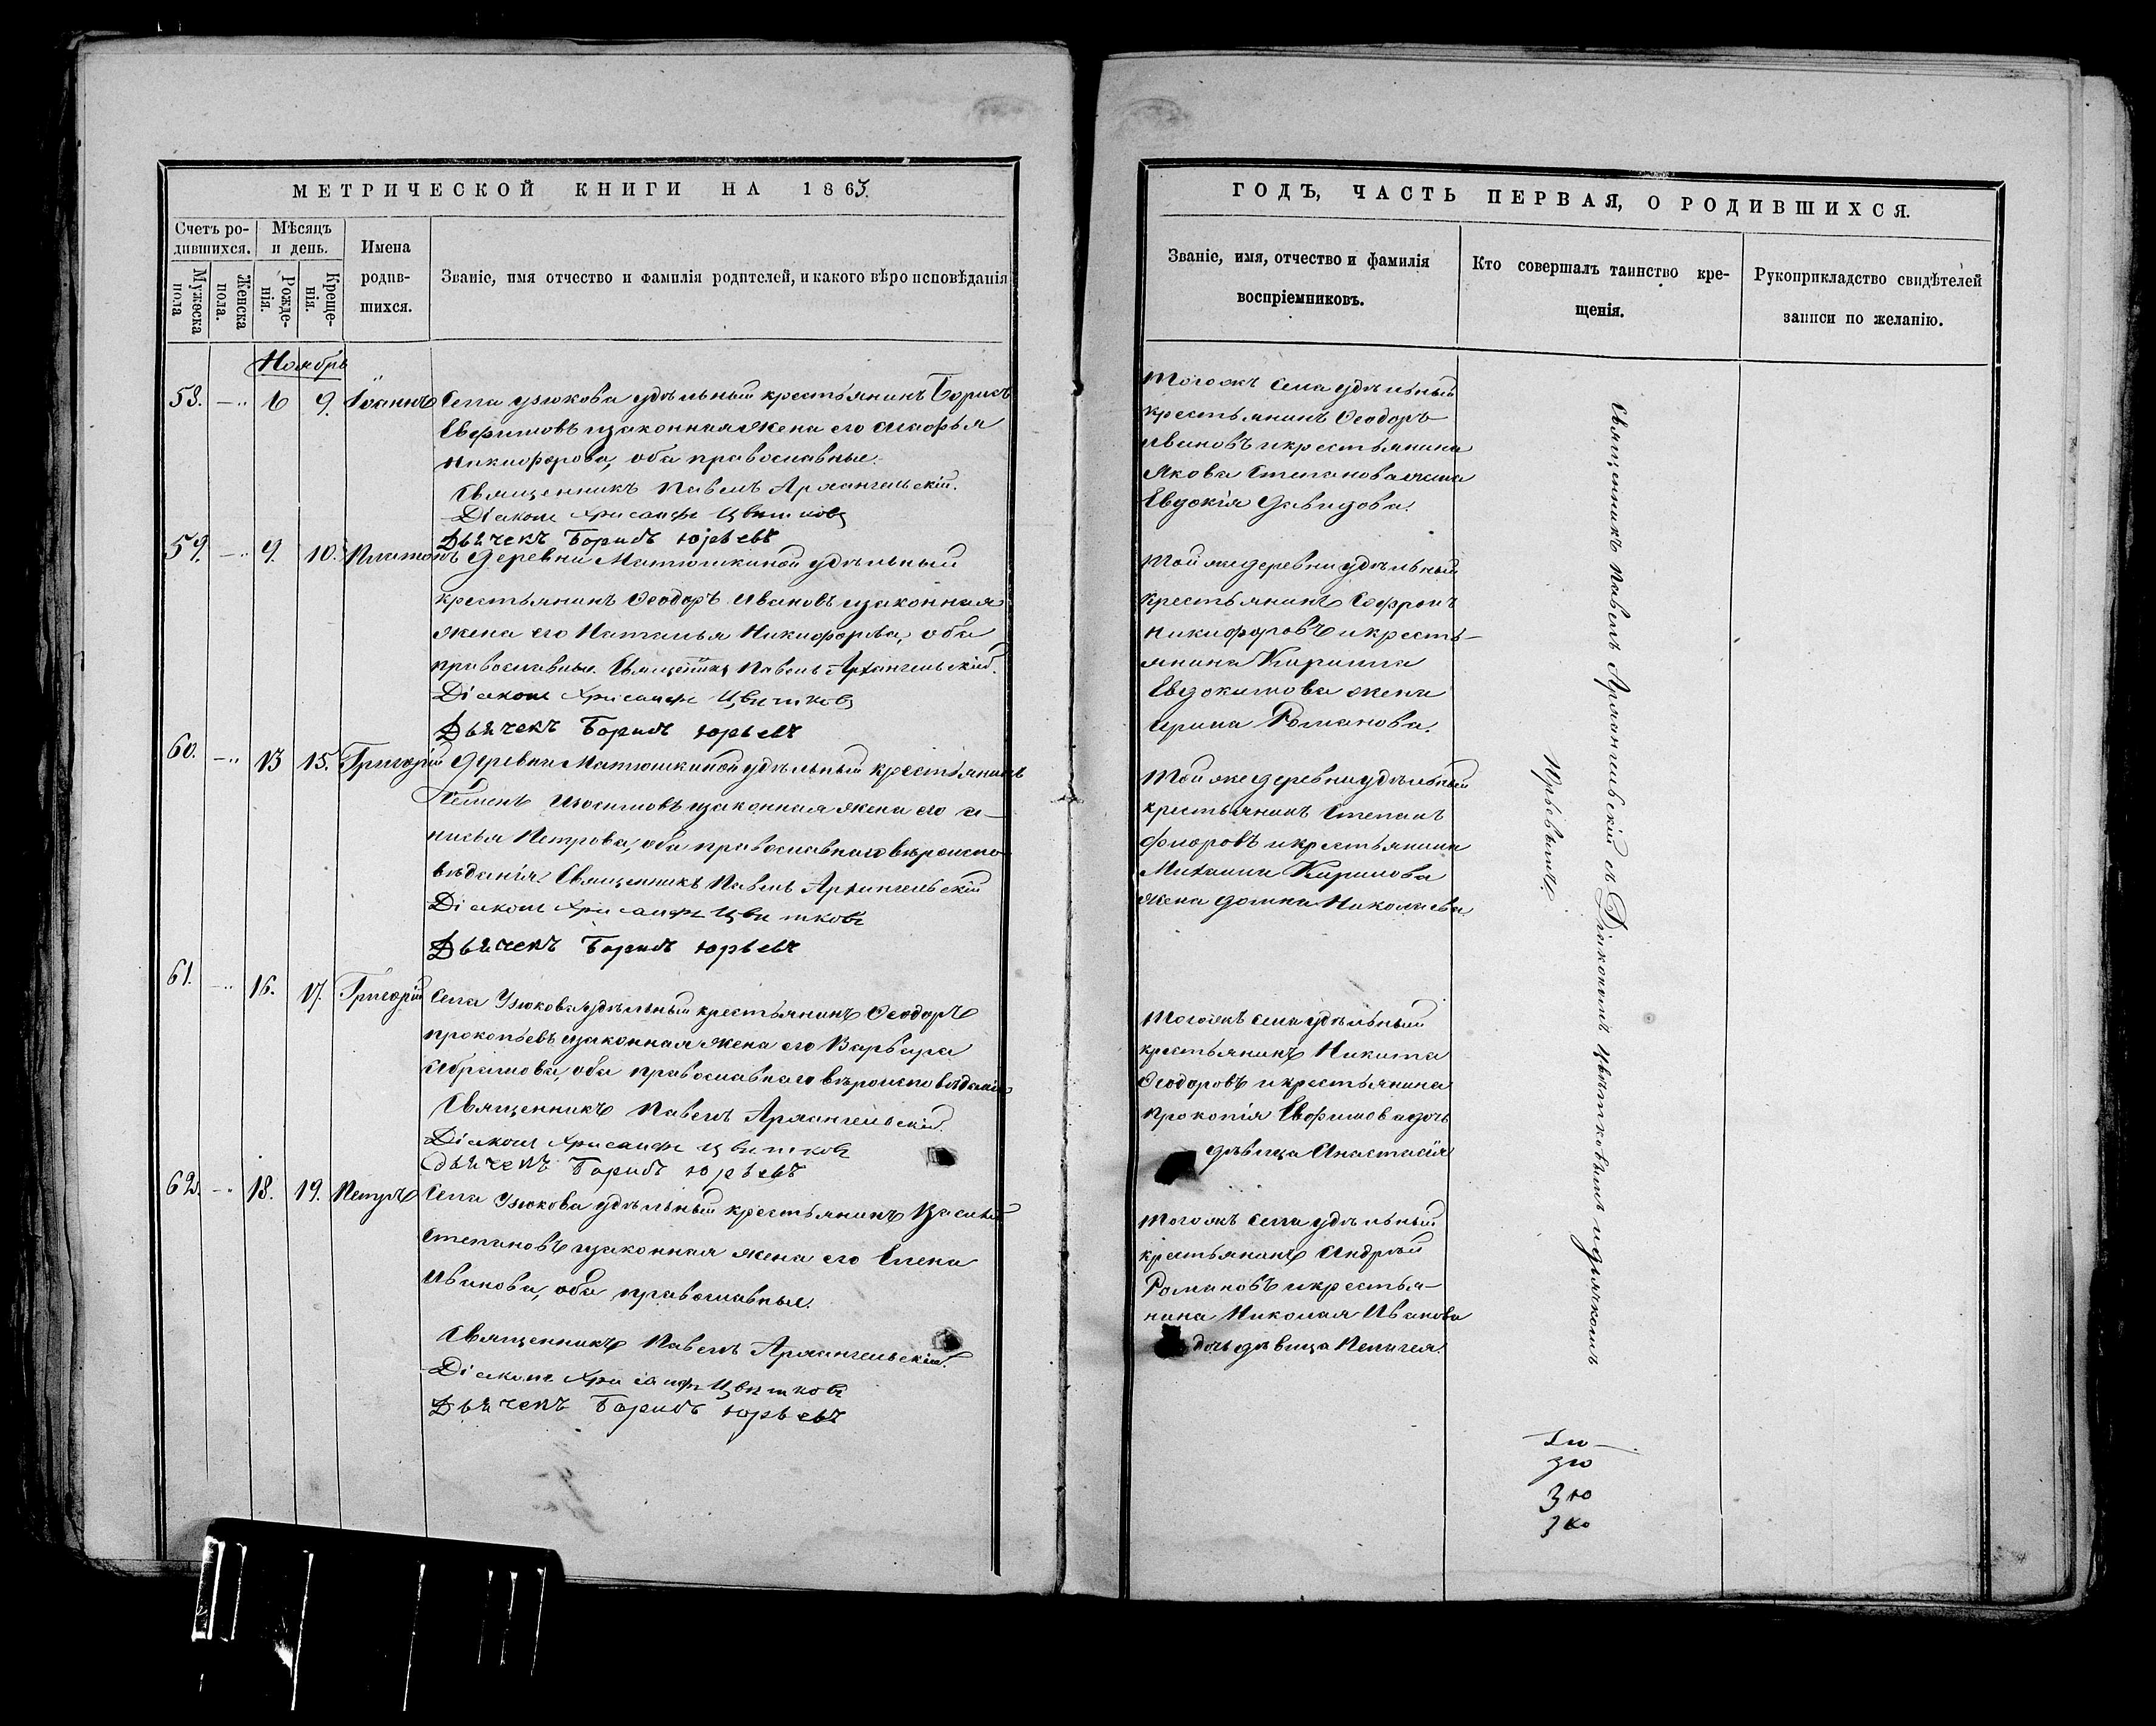 МЕТРИЧЕСКОЙ КНИГИ НА 1863.
Счетъ ро-
дившихся.
Мѣсяцъ
и день.
Имена
родив-
шихся.
Званіе, имя отчество и фамилія родителей, и какого вѣроисповѣданія
Мужеска
пола
Женска
пола.
Рожде-
нія.
Креще-
нія.
Ноябрь
58. 6 9. Іоаннъ Села Узюкова удѣльный крестьянинъ Борисъ
Евфимовъ и законная жена его Марфья
Никифорова, оба православные.
Священникъ Павелъ Архангельскій.
Діаконъ Хрисанфъ Цвѣтковъ
Дьячекъ Борисъ Юрьевъ
59. 9. 10. Платонъ Деревни Матюшкиной удѣльный
крестьянинъ Ѳеодоръ Ивановъ и законная
жена его Наталья Никифорова, оба
православные. Священникъ Павелъ Архангельскій.
Діаконъ Хрисанфъ Цвѣтковъ
Дьячекъ Борисъ Юрьевъ
60. 13 15. Григорій Деревни Матюшкиной удѣльный крестьянинъ
Семенъ Изосимовъ и законная жена его А-
нисья Петрова, оба православнаго вѣроиспо-
вѣданія. Священникъ Павелъ Архангельскій
Діаконъ Хрисанфъ Цвѣтковъ
Дьячекъ Борисъ Юрьевъ
61. 16. 17. Григорій Села Узюкова удѣльный крестьянинъ Ѳеодоръ
Прокопьевъ и законная жена его Варвара
Абрамова, оба православнаго вѣроисповѣданія
Священникъ Павелъ Архангельскій.
Діаконъ Хрисанфъ Цвѣтковъ
Дьячекъ Борисъ Юрьевъ
62. 18. 19. Петръ Села Узюкова удѣльный крестьянинъ Василій
Степановъ и законная жена его Елена
Иванова, оба православные.
Священникъ Павелъ Архангельскій.
Діаконъ Хрисанфъ Цвѣтковъ
Дьячекъ Борисъ Юрьевъ
ГОДЪ, ЧАСТЬ ПЕРВАЯ, О РОДИВШИХСЯ.
Званіе, имя, отчество и фамилія
воспріемниковъ.
Кто совершалъ таинство кре-
щенія.
Рукоприкладство свидѣтелей
записи по желанію.
Тогожъ села удѣльный
крестьянинъ Ѳеодоръ
Ивановъ и крестьянина
Якова Степанова жена
Евдокія Давидова.
Той же деревни удѣльный
крестьянинъ Софронъ
Никифоровъ и кресть-
янина Кирилла
Евдокимова жена
Ирина Романова.
Той же деревни удѣльный
крестьянинъ Степанъ
Флоровъ и крестьянина
Михаила Кирилова
жена Домна Николаева
Тогожъ села удѣльный
крестьянинъ Никита
Ѳеодоровъ и крестьянина
Прокопія Евфимова дочь
дѣвица Анастасія
Тогожъ села удѣльный
крестьянинъ Андрей
Романовъ и крестья-
нина Николая Иванова
дочь дѣвица Пелагея.
Священникъ Павелъ Архангельскій съ Діакономъ Цвѣтковымъ и дьячкомъ
Юрьевымъ.